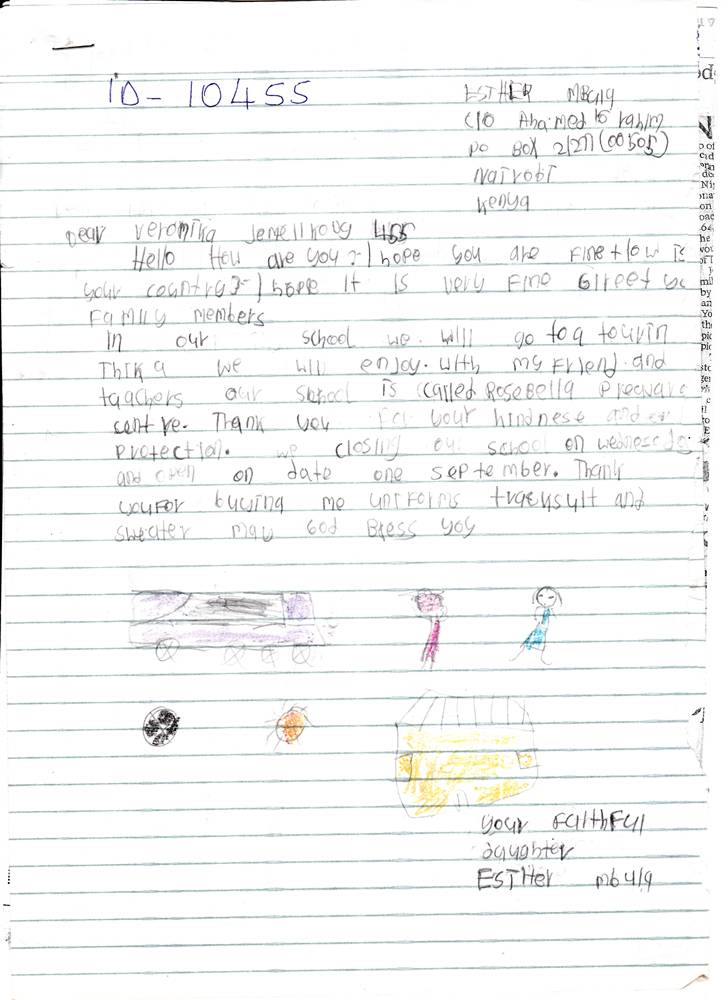 ID - 10455
ESTHER Mbula
C/O Aha.med
PO BOX 21271 (00505)
Nairobi
Kenya
Dear veronika
Hello How are you?- I hope you are Fine How is
your country?- I hope It Is very Fine Greet
Family members
In our school we will go to a tourin
Thika we will enjoy. with my Friend. and
teachers our school is called Rosebella
centre. Thank you For your kindnese and
Protection. we closing our school on
and open on date one september. Thank
youFor buying me uniforms tracnsult and
sweater may God Bless you
your FaithFul
daughter
ESTHer mbula